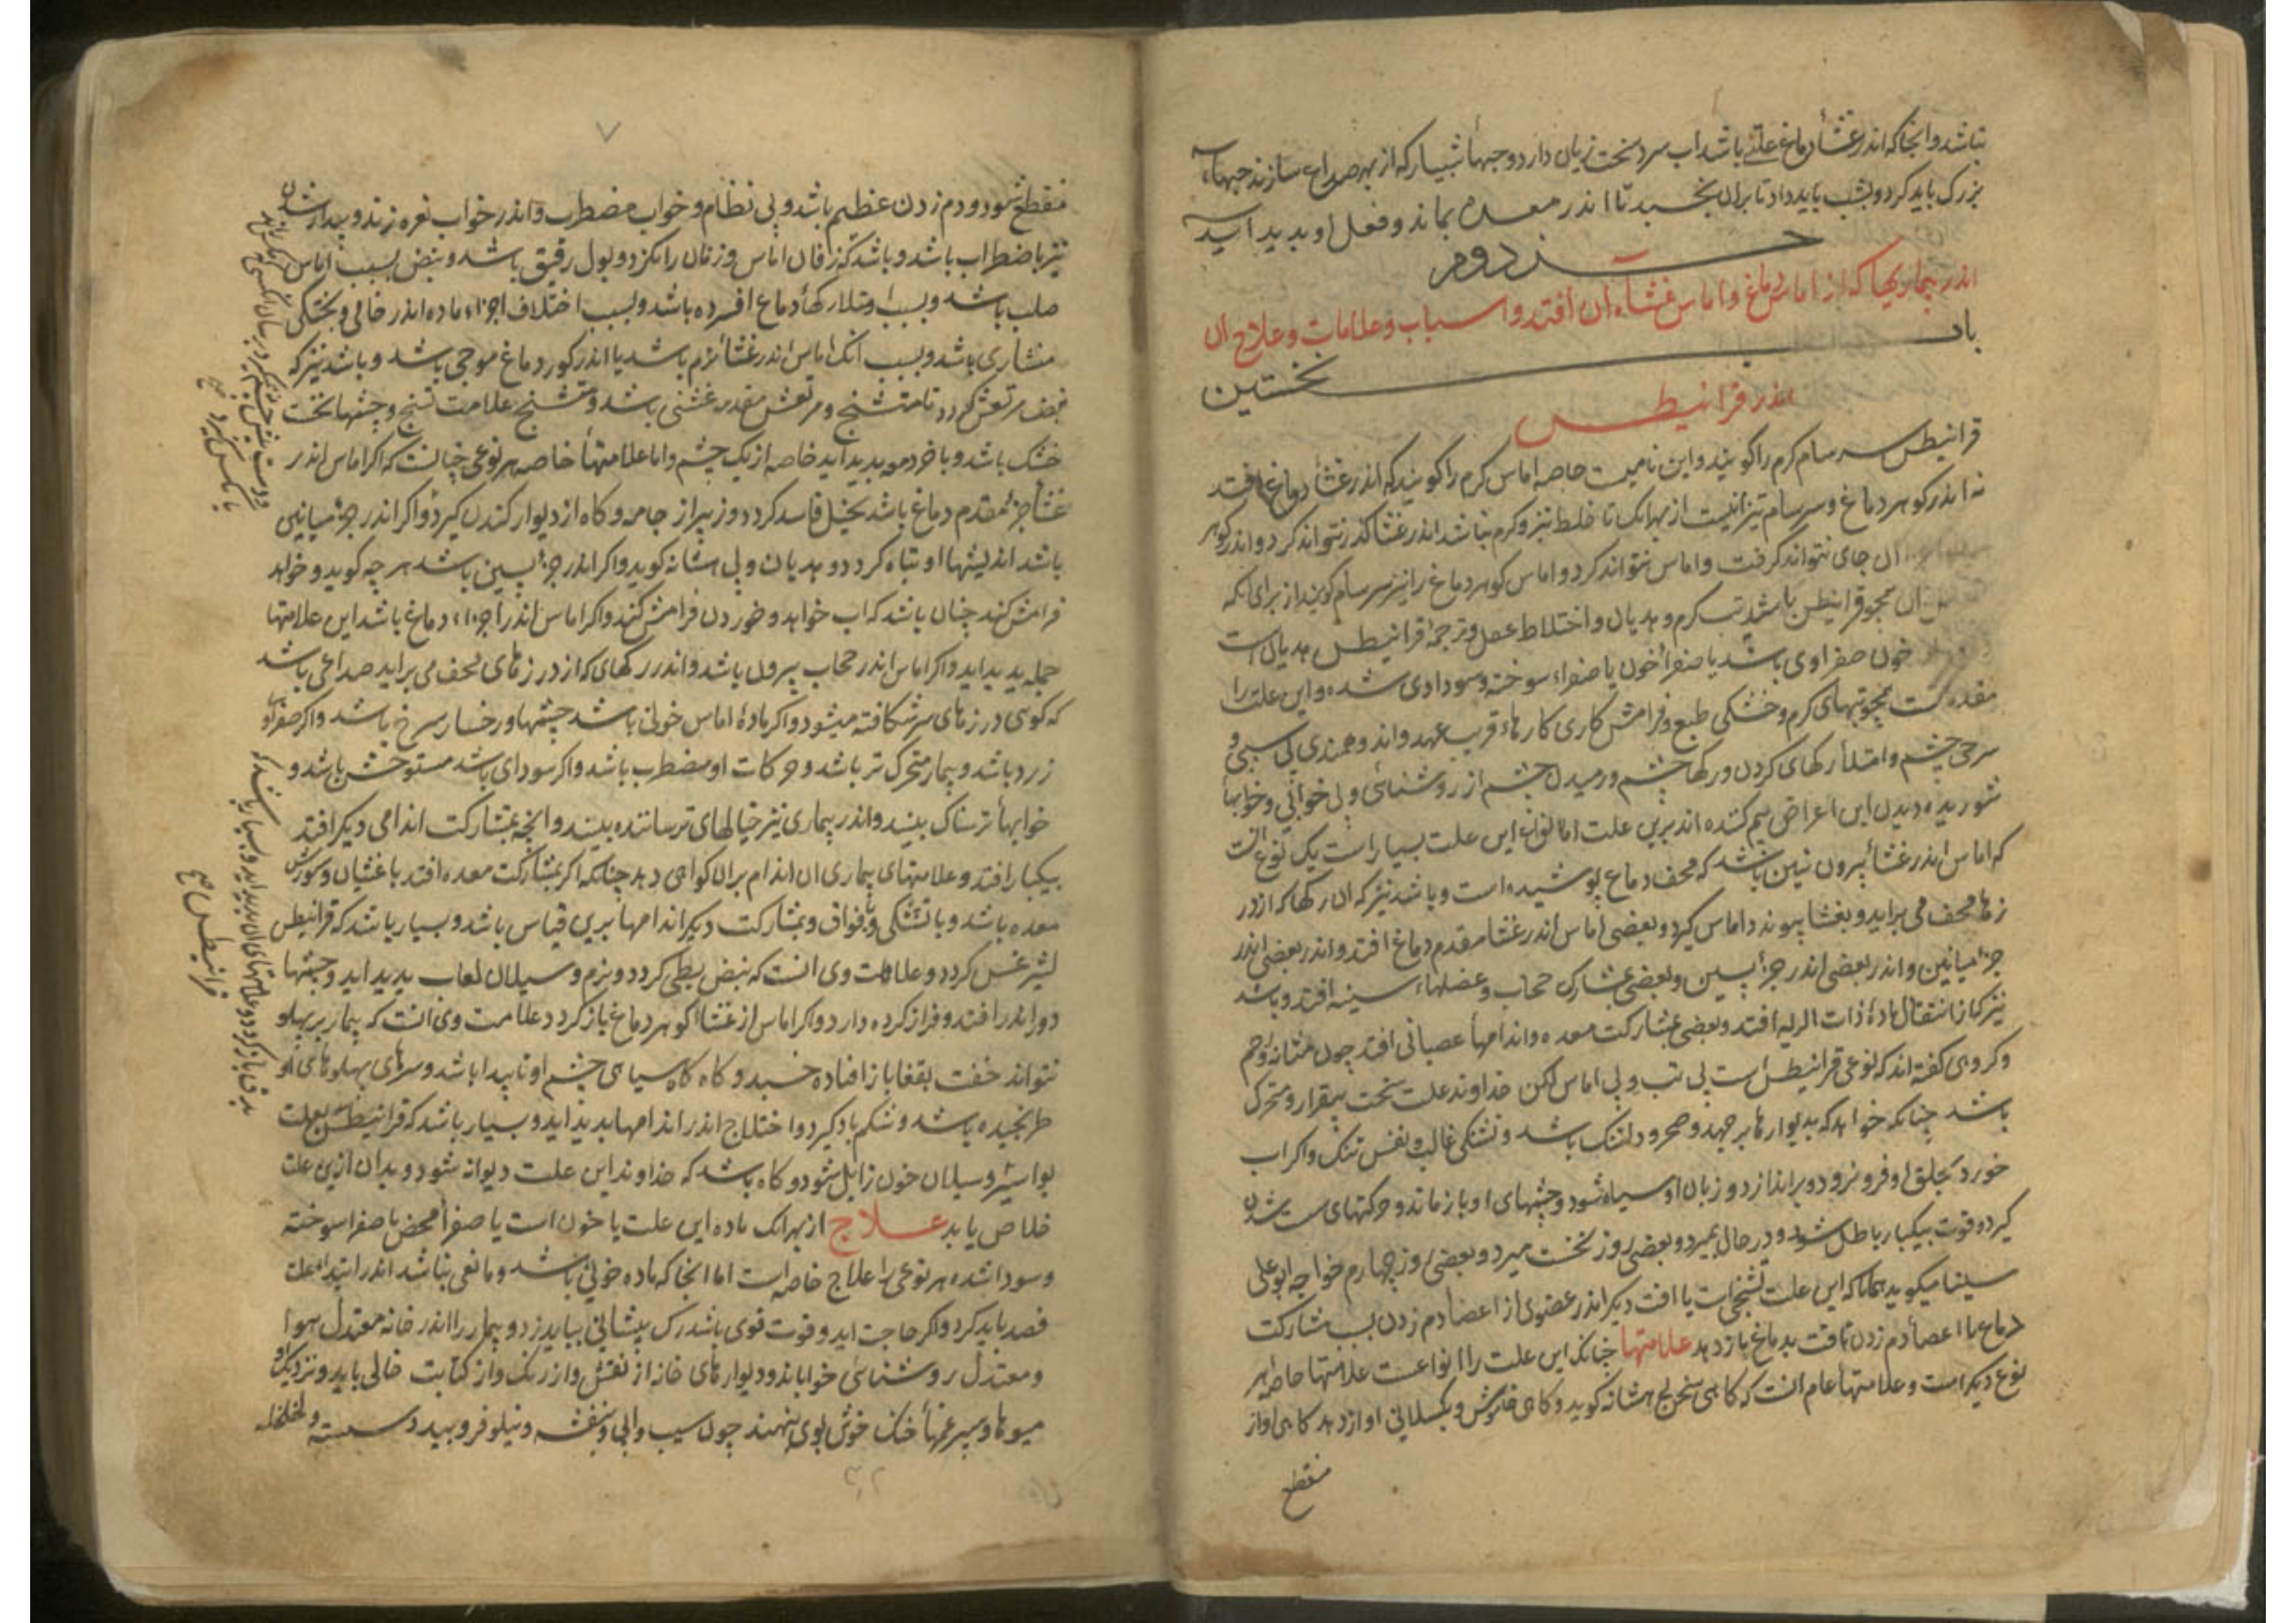 نباشد و انجا که اندر غشأ دماغ علتی باشد اب سرد سخت زیان دارد و حبهأ شبیار که از بهر صداع سازند حبهاء
بزرک باید کرد و بشب باید داد تا بران بخسبد تا اندر معده بماند و فعل او بدید اید
جزء دوم
اندر بیماریها که از اماس دماغ و اماس غشاء ان افتد و اسباب و علامات و علاج ان
باب نخستین
اندر قرانیطس
قرانیطس سرسام کرم را کویند و این نامیست خاصه اماس کرم را کویند که اندر غشأ دماغ افتد
نه اندر کوهر دماغ و سرسام نیز انیست از بهر انک تا خلط تیز و کرم نباشد اندر غشا کذر نتواند کرد و اندر کوهر
ان جای نتواند کرفت و اماس نتواند کرد و اماس کوهر دماغ را نیز سرسام کویند از برای انکه
همچو قرانیطس باشد تب کرم و هدیان و اختلاط عقل و ترجمهٔ قرانیطس هدیان است
خون صفراوی باشد یا صفرأ خون یا صفراء سوخته و سوداوی شده و این علت را
مقدمه است همچو تبهای کرم و خشکی طبع و فرامش کاری کارهاء قریب عهد و اندوهمندی بی سببی و
سرخی چشم و امتلأ رکهای کردن و رکها چشم و رمیدن چشم از روشنائی و بی خوابی و خوابها
شوریده دیدن این اعراض بیم کننده اند برین علت اما انواع این علت بسیار است یک نوع انست
که اماس اندر غشأ بیرون نین باشد که قحف دماغ پوشیده است و باشد نیز که ان رکها که از در
زها قحف می براید و بغشا پیوندد اماس کیرد و بعضی اماس اندر غشأ مقدم دماغ افتد و اندر بعضی اندر
جزء میانین و اندر بعضی اندر جزأ پسین و بعضی بمشارکت حجاب و عضلهاء سینه افتد و باشد
نیز که از انتقال مادهٔ ذات الریه افتد و بعضی بمشارکت معده و اندامهأ عصبانی افتد چون مثانه و رحم
و کروهی کفته اند که نوعی قرانیطس است بی تب و بی اماس لکن خداوند علت سخت بیقرار و متحرک
باشد چنانکه خواهد که بدیوارها برجهد و ضجر و دلتنک باشد و تشنکی غالب و نفس تنک و اکر اب
خورد بحلق او فرو نرود و براندازد و زبان او سیاه شود و چشمهای او باز ماند و حرکتهای سست شدن
کیرد و قوت بیکبار باطل شود و در حال بمیرد و بعضی روز نخست میرد و بعضی روز چهارم خواجه ابوعلی
سینا میکوید همانا که این علت تشنجی است یا افت دیکر اندر عضوی از اعضأ دم زدن بسب مشارکت
دماغ با اعضأ دم زدن افت بدماغ باز دهد علامتها چنانک این علت را انواعست علامتها خاصه هر
نوع دیکر است و علامتهأ عام انست که کاهی سخن لج هشانه کوید و کاهی خاموش و بکسلانی او از دهد کاهی اواز
منقطع
٧
منقطع شود و دم زدن عظیم باشد و بی نظام و خواب مضطرب و اندر خواب نعره زند و بیدار شدن
نیز باضطراب باشد و باشد که زفان اماس و زفان را بکزد و بول رقیق باشد و نبض بسبب اماس
صلب باشد و بسبب امتلا رکهأ دماغ افسرده باشد و بسبب اختلاف اجزاء ماده اندر خامی و پختکی
منشاری باشد و بسبب انک اماس اندر غشأ نرم باشد یا اندر کوهر دماغ موجی باشد و باشد نیز که
نبض مرتعش کردد تا متشنج و مرتعش مقدمه غشی باشد و متشنج علامت تشنج و چشمها نخست
خشک باشد و باخر دمعه بدید اید خاصه از یک چشم و اما علامتهأ خاصه هر نوعی چنانست که اکر اماس اندر
غشأ جزء مقدم دماغ باشد تخیل فاسد کردد و زیبر از جامه و کاه از دیوار کندن کیرد و اکر اندر جزء میانین
باشد اندیشها او تباه کردد و هدیان و بی هشانه کوید و اکر اندر جزأ پسین باشد هر چه کوید و خواهد
فرامش کند چنان باشد که اب خواهد و خوردن فرامش کند و اکر اماس اندر همه اجزاء دماغ باشد این علامتها
جمله بدید اید و اکر اماس اندر حجاب بیرون باشد و اندر رکهای که از درزهای قحف می براید صداعی باشد
که کوی درزهای سر شکافته میشود و اکر مادهٔ اماس خونی باشد چشمها و رخسار سرخ باشد و اکر صفراوی
زرد باشد و بیمار متحرک تر باشد و حرکات او مضطرب باشد و اکر سودای باشد مستوحش باشد و
خوابهأ ترسناک بیند و اندر بیماری نیز خیالهای ترساننده بیند و انچه بمشارکت اندامی دیکر افتد
بیکبار افتد و علامتهای بیماری ان اندام بران کواهی دهد چنانکه اکر بمشارکت معده افتد با غثیان و سوزش
معده باشد و با تشنکی و فواق و بمشارکت دیکر اندامها برین قیاس باشد و بسیار باشد که قرانیطس
لیثرغس کردد و علامات وی انست که نبض بطی کردد و نرم و سیلان لعاب بدید اید و چشمها
دور اندر افتد و فراز کرده دارد و اکر اماس از غشأ کوهر دماغ باز کردد علامت وی انست که بیمار بر پهلو
نتواند خفت بقفا باز افتاده خسبد و کاه کاه سیاهی چشم او ناپیدا باشد و سرهای پهلوهای او
ترنجیده باشد و شکم باد کیرد و اختلاج اندر اندامها بدید اید و بسیار باشد که قرانیطس بعلت
بواسیر و سیلان خون زایل شود و کاه باشد که خداوند این علت دیوانه شود و بدان ازین علت
خلاص یابد علاج از بهر انک ماده این علت یا خون است یا صفرأ محض یا صفرا سوخته
و سودا شده هر نوعی را علاج خاصه است اما انجا که ماده خونی باشد و مانعی نباشد اندر ابتداء علت
فصد باید کرد و اکر حاجت اید و قوت قوی باشد رک پیشانی بباید زد و بیمار را اندر خانه معتدل هوا
و معتدل روشنائی خواباند و دیوارهای خانه از نقش و از رنک و از کتابت خالی باید و نزدیک او
میوها و سپرغمهأ خنک خوش بوی بنهند چون سیب و ابی و بنفشه و نیلوفر و بید دسته و لخلخها
قرانیطس